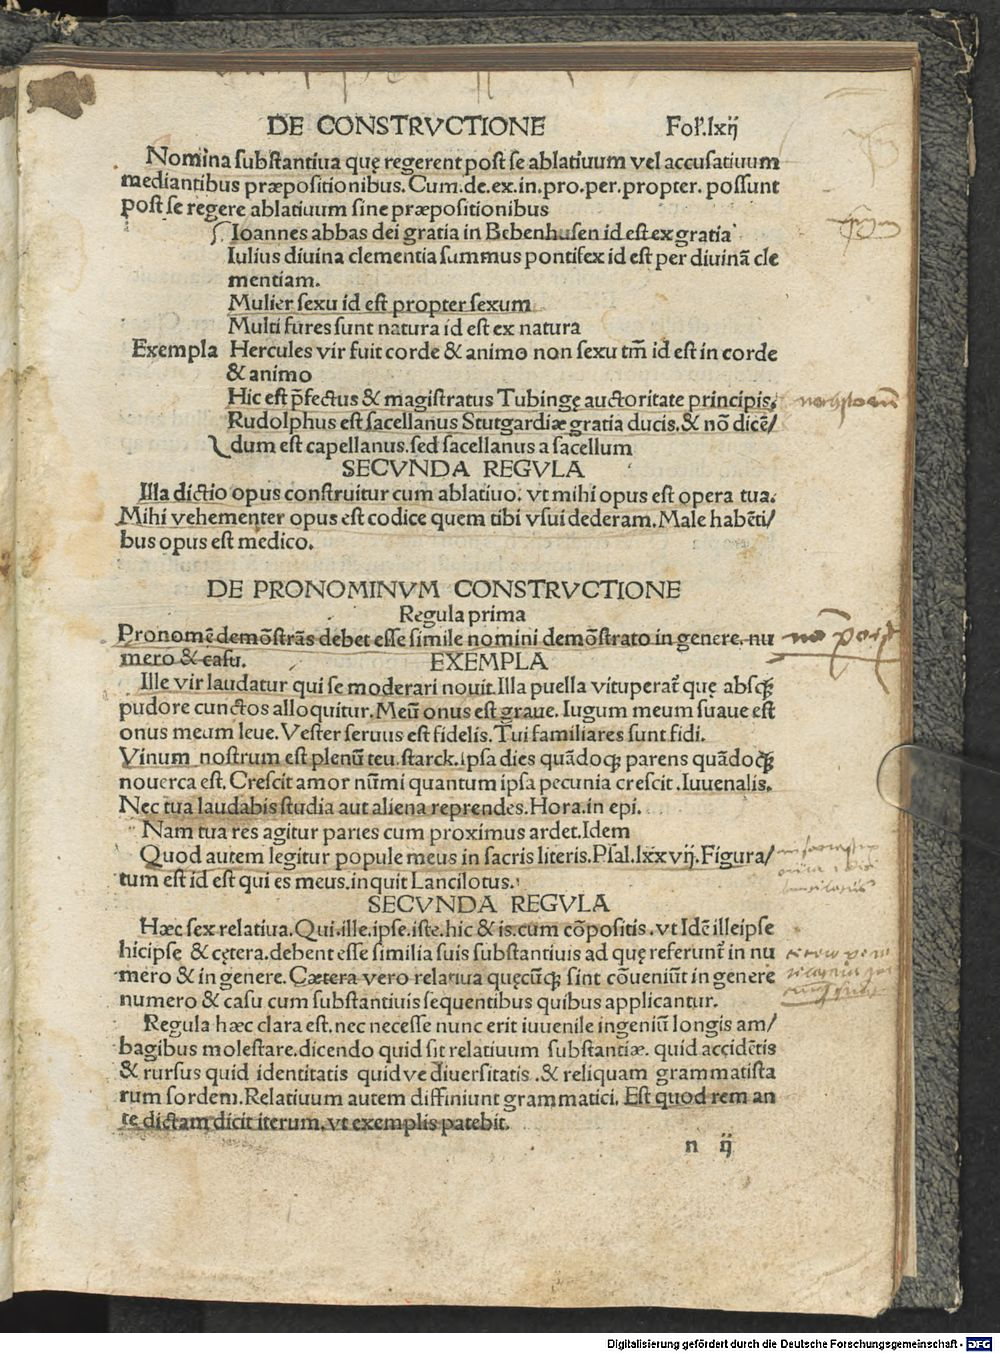 DE CONSTRVCTIONE Fol'.lxij
Nomina substantiua quę regerent post se ablatiuum vel accusatiuum
mediantibus præpositionibus. Cum. de. ex. in. pro. per. propter. possunt
post se regere ablatiuum sine præpositionibus
Ioannes abbas dei gratia in Bebenhusen id est ex gratia
Iulius diuina clementia summus pontifex id est per diuinã cle
mentiam.
Mulier sexu id est propter sexum
Multi fures sunt natura id est ex natura
Exempla Hercules vir fuit corde & animo non sexu tm̃ id est in corde
& animo
Hic est p̃fectus & magistratus Tubingę auctoritate principis.
Rudolphus est sacellanus Stutgardiæ gratia ducis. & nõ dicẽ/
dum est capellanus. sed sacellanus a sacellum
SECVNDA REGVLA
Illa dictio opus construitur cum ablatiuo. vt mihi opus est opera tua.
Mihi vehementer opus est codice quem tibi vsui dederam. Male habẽti/
bus opus est medico.
DE PRONOMINVM CONSTRVCTIONE
Regula prima
Pronomẽ demõstrãs debet esse simile nomini demõstrato in genere. nu
mero & casu. EXEMPLA
Ille vir laudatur qui se moderari nouit. Illa puella vituperat᷑ quę absq̨
pudore cunctos alloquitur. Meũ onus est graue. Iugum meum suaue est
onus meum leue. Vester seruus est fidelis. Tui familiares sunt fidi.
Vinum nostrum est plenũ teu. starck. ipsa dies quãdoq̨ parens quãdoq̨
nouerca est. Crescit amor nũmi quantum ipsa pecunia crescit. Iuuenalis.
Nec tua laudabis studia aut aliena reprendes. Hora. in epi.
Nam tua res agitur paries cum proximus ardet. Idem
Quod autem legitur popule meus in sacris literis. Psal. lxxvij. Figura/
tum est id est qui es meus. inquit Lancilotus.
SECVNDA REGVLA
Hæc sex relatiua. Qui. ille. ipse. iste. hic & is. cum cõpositis. vt Idẽ illeipse
hicipse & cętera. debent esse similia suis substantiuis ad quę referunt᷑ in nu
mero & in genere. Cætera vero relatiua quęcũq̨ sint cõueniũt in genere
numero & casu cum substantiuis sequentibus quibus applicantur.
Regula hæc clara est. nec necesse nunc erit iuuenile ingeniũ longis am/
bagibus molestare. dicendo quid sit relatiuum substantiæ. quid accidẽtis
& rursus quid identitatis quid ve diuersitatis. & reliquam grammatista
rum sordem. Relatiuum autem diffiniunt grammatici. Est quod rem an
te dictam dicit iterum. vt exemplis patebit.
n ij
Digitalisierung gefördert durch die Deutsche Forschungsgemeinschaft - DFG